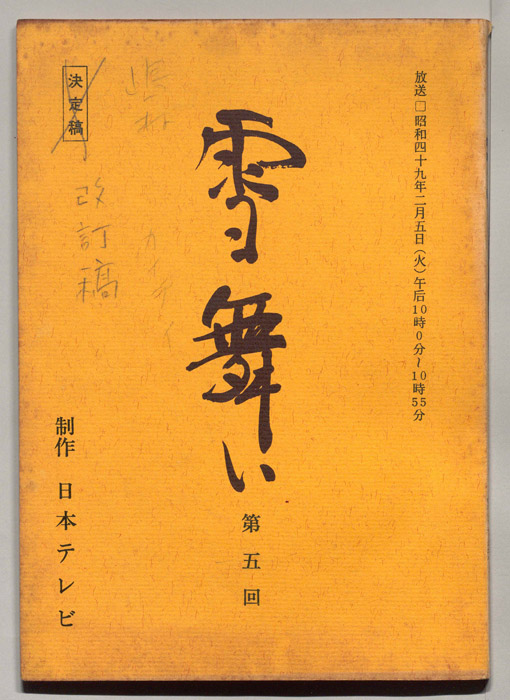 放送□昭和四十九年二月五日(火)午后10時0分〜10時55分
雪舞い
第五回
決定稿
改訂稿
制作 日本テレビ